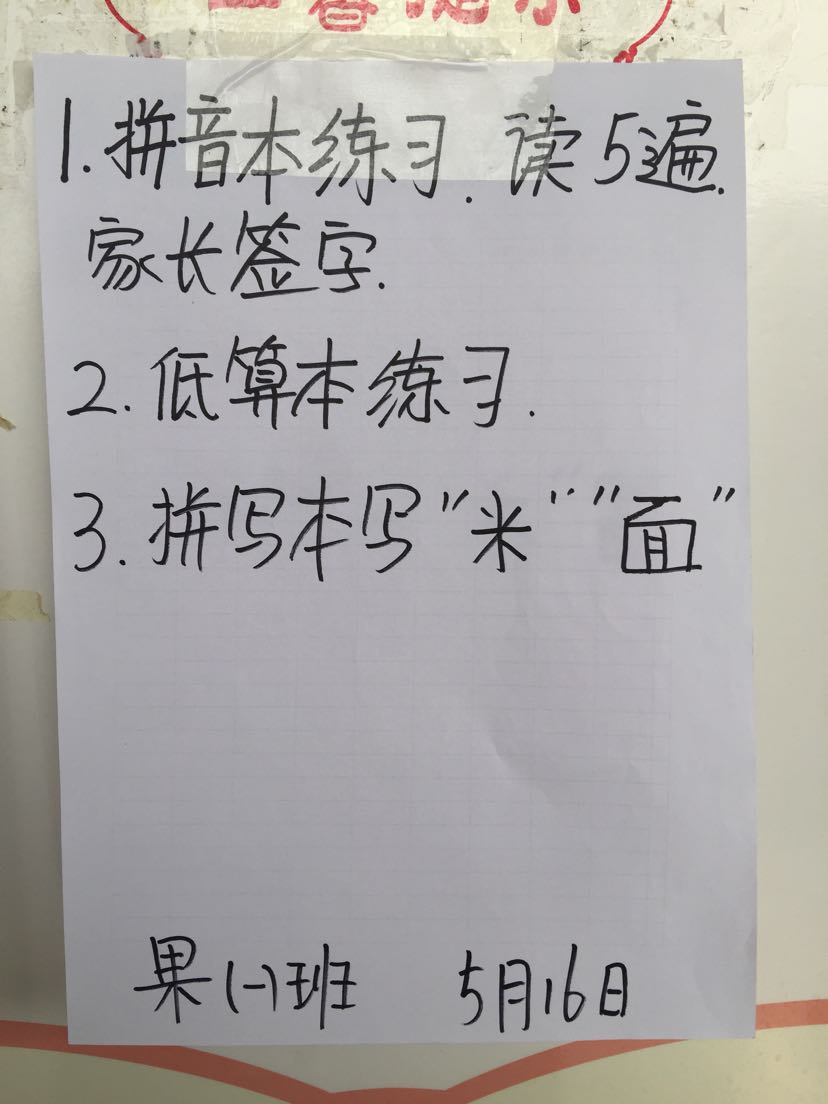 温馨提示
1.拼音本练习.读5遍.
家长签字.
2.低算本练习.
3.拼写本写"米""面"
果(一)班 5月16日